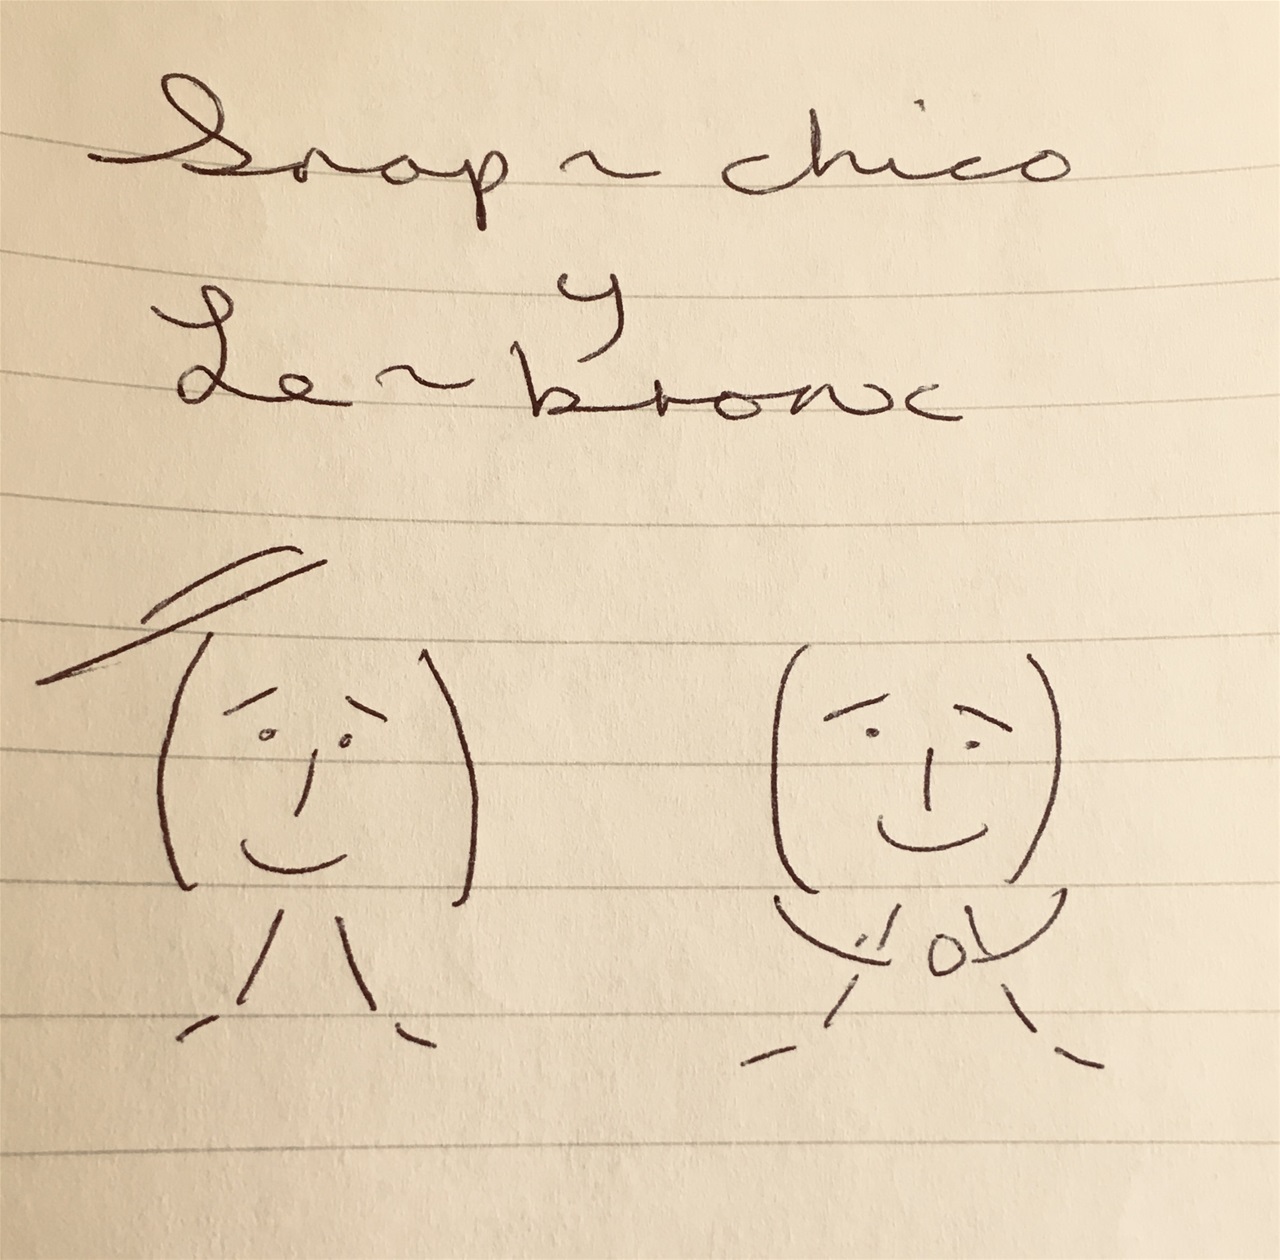 Snap ~ chico
y
Le ~ bronc